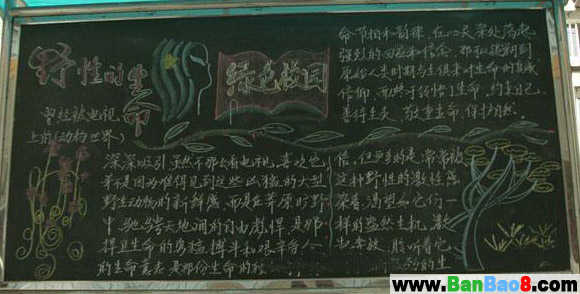 野性的生命
绿色校园
曾经被电视
上的《动物世界》
深深吸引 虽然不那么看电视,喜欢它,
并不是因为难得见到这些凶猛的大型
野生动物的新鲜感 而是在草原时野
中 驰骋天地间的自由彪悍 是那
捍卫生命的勇猛 搏斗和艰辛给人
的生命意志 是那份生命的
信,但更多的是,常常被
这种野性的激性感
染着,渴望如它们一
样的盎然生机,激
奔放,聆听着它
的生
命节拍和韵律,在心灵深处荡起
强烈的回应和信念 那
原始人类时期与生俱来对生命的真诚
信仰 而终于领悟了生命,约束自己
善待生灵 敬重生命,保护自然.
www.BanBao8.com